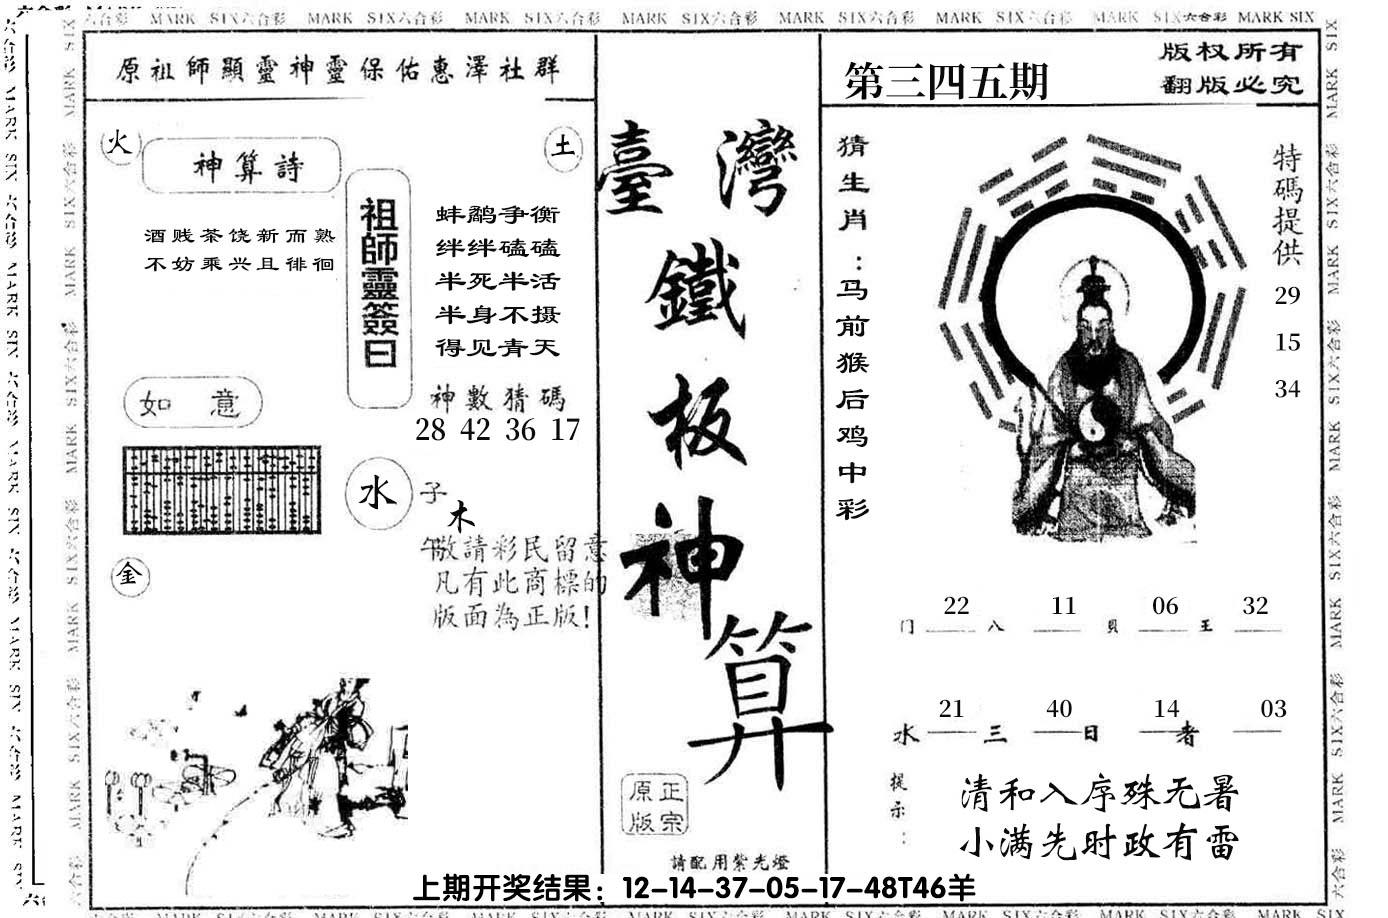 MARK SIX六合彩 MARK SIX六合彩 MARK SIX六合彩 MARK SIX六合彩 MARK SIX六合彩 MARK SIX六合彩 MARK SIX六合彩 MARK SIX
原祖師顯靈神靈保佑惠澤社群
火
神算詩
土
酒贱茶饶新而熟
不妨乘兴且徘徊
祖師靈簽曰
蚌鹬争衡
绊绊磕磕
半死半活
半身不摄
得见青天
神數猜碼
28 42 36 17
如 意
水
子
木
午
金
敬請彩民留意
凡有此商標的
版面為正版!
臺灣
鐵
板
神
算
正宗
原版
請配用紫光燈
第三四五期
版权所有
翻版必究
猜生肖:马前猴后鸡中彩
特碼提供
29
15
34
22 11 06 32
门 八 貝 王
21 40 14 03
水 三 日 者
提示:
清和入序殊无暑
小满先时政有雷
上期开奖结果：12-14-37-05-17-48T46羊